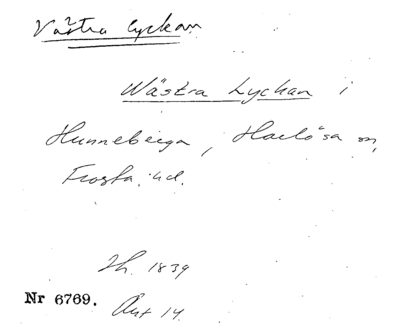 Västra Lyckan
Wästra Lyckan i
Hunneberga, Harlösa sn,
Frosta hd.
Lh. 1839
Nr 6769.
Akt 14.